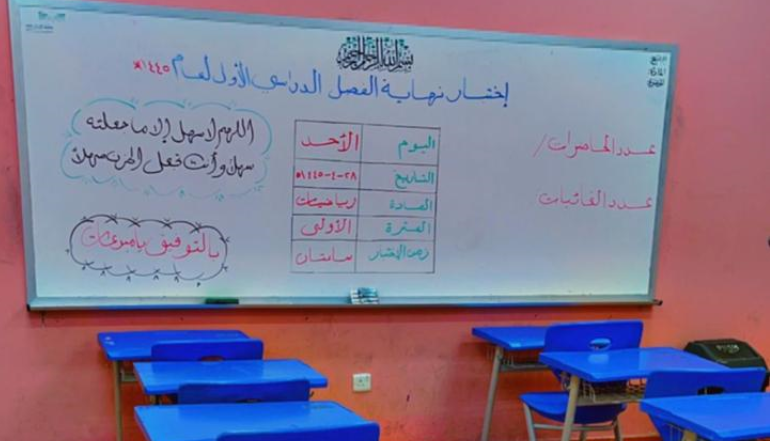 بسم الله الرحمن الرحيم
إختبار نهاية الفصل الدراسي الأول لعام ١٤٤٥هـ
التاريخ
المادة
الموضوع
عدد الحاضرات /
عدد الغائبات
اليوم الأحد
التاريخ ٢٨-٤-١٤٤٥هـ
المادة رياضيات
الفترة الأولى
زمن الإختبار ساعتان
اللهم لا سهل إلا ما جعلته
سهلاً وأنت تجعل الحزن سهلاً
بالتوفيق يامبدعات